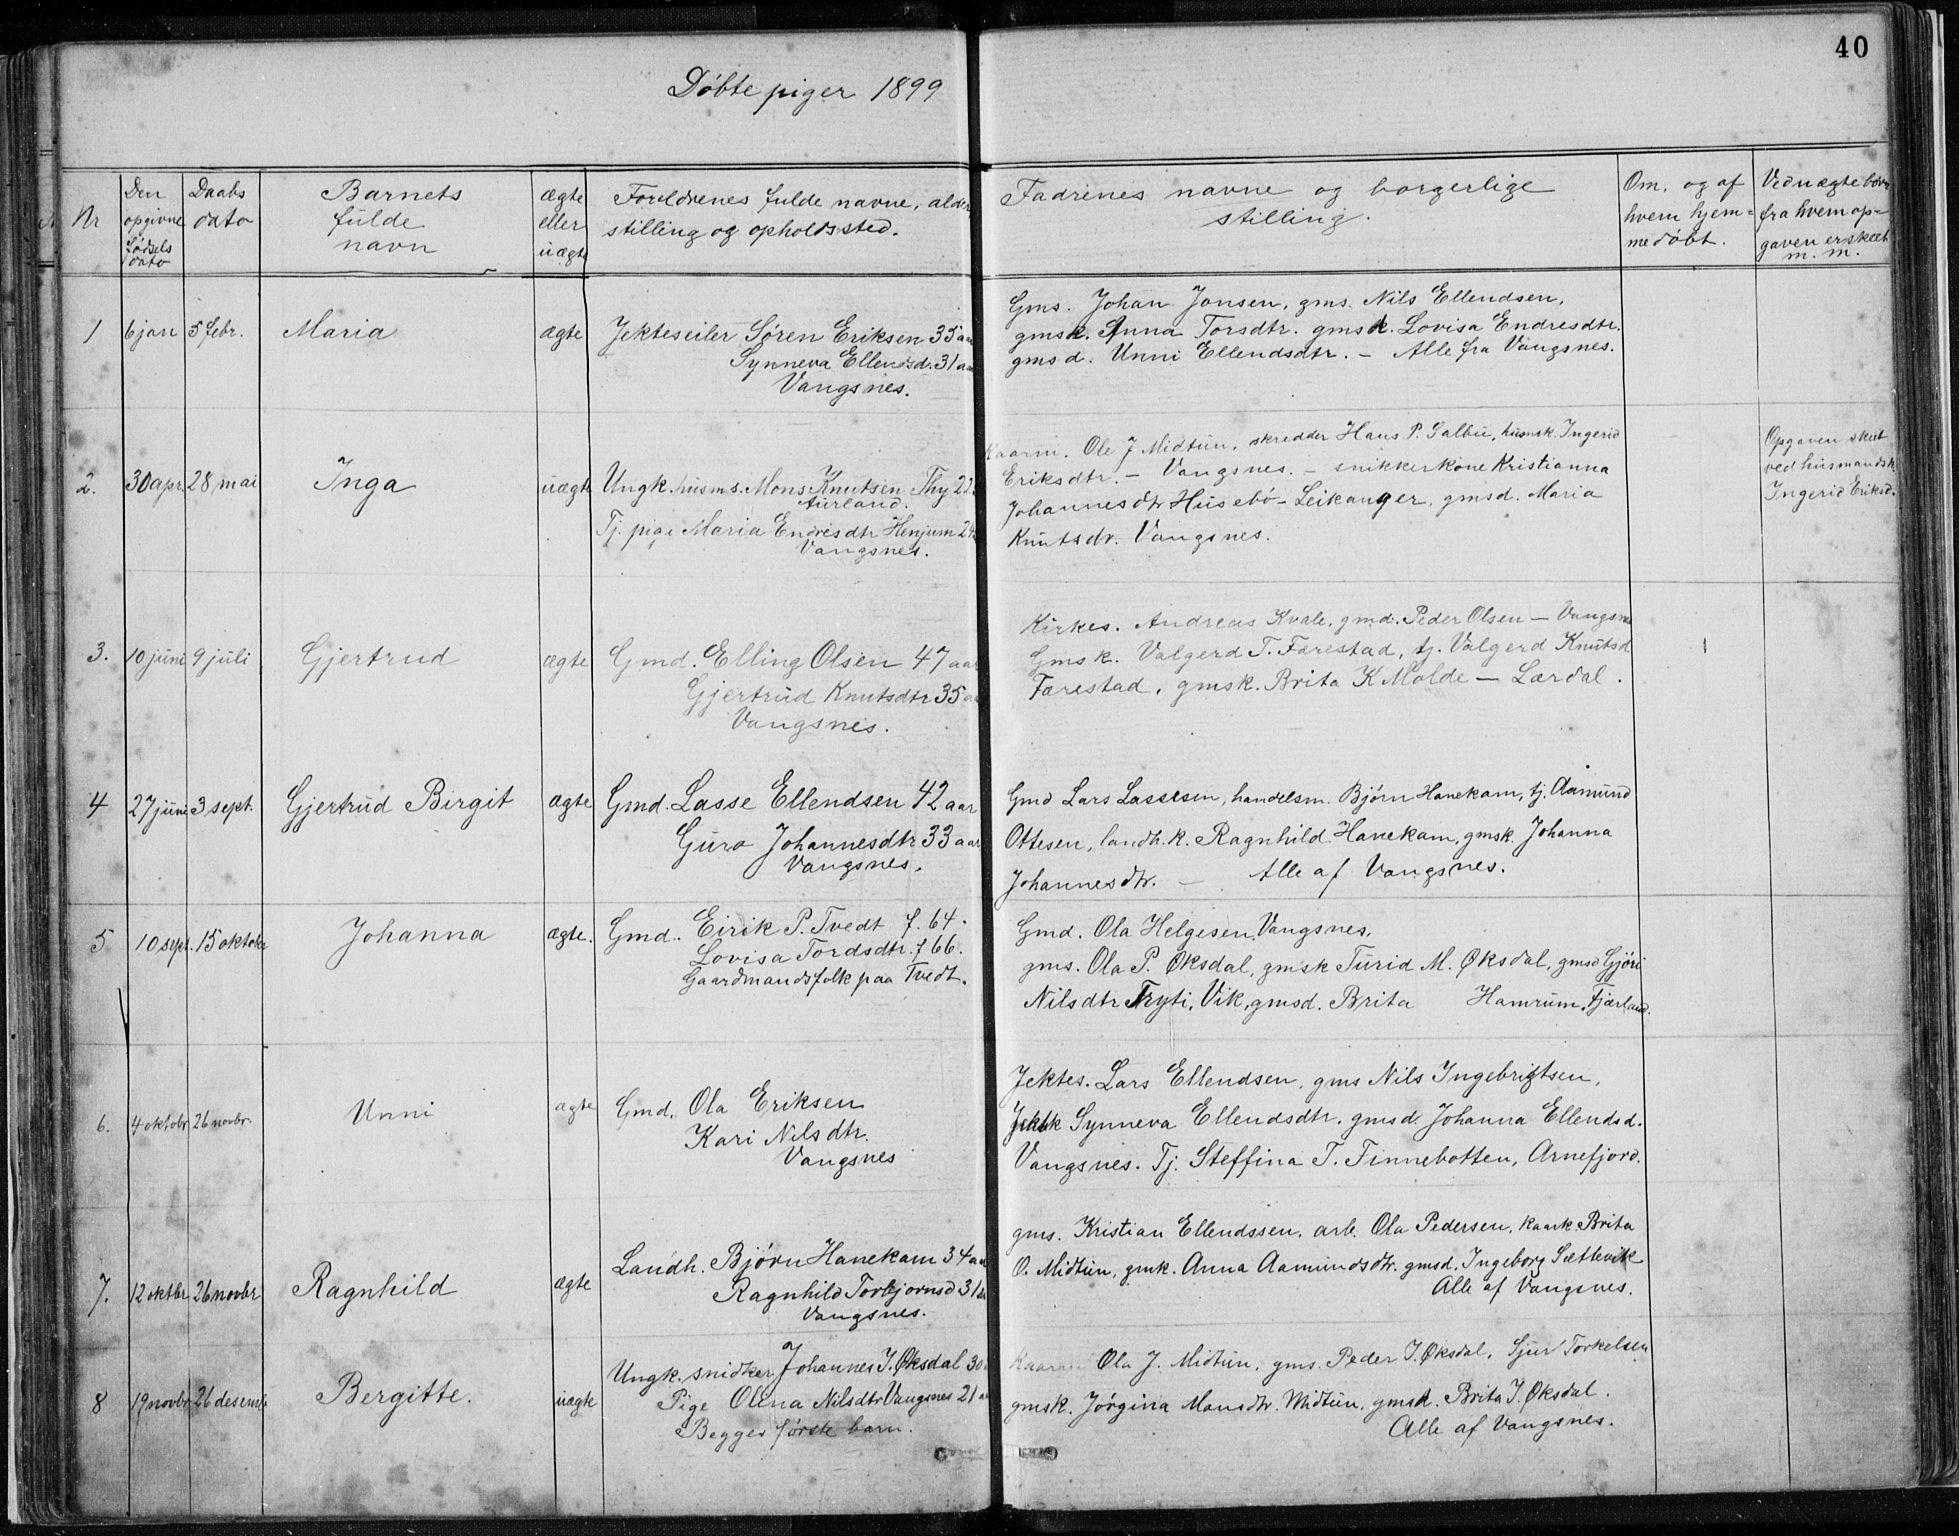 40
Døbte piger 1899
Nr
Den
opgivne
fødsels
dato
Daabs
dato
Barnets
fulde
navn
ægte
eller
uægte
Foreldrenes fulde navne, alder,
stilling og opholdssted.
Fadrenes navne og borgerlige
stilling.
Om, og af
hvem hjem=
medøbt.
Ved uægte børn
fra hvem op-
gaven er skeet
m. m.
1 6 jan 5 febr. Maria ægte
Jekteseiler Søren Eriksen 35 aar
Synneva Ellendsd. 31 aar
Vangsnes.
Gms. Johan Jonsen, gms. Nils Ellendsen,
gmsk. Anna Torsdtr. gmsk. Lovisa Endresdtr.
gmsd. Unni Ellendsdtr. – Alle fra Vangsnes.
2. 30 apr. 28 mai Inga uægte
Ungk. husms. Mons Knutsen Thy 22
Aurland.
Tj. pige Maria Endresdtr Henjum 24
Vangsnes.
Kaarm. Ole J Midtun, skredder Hans P. Galbu, husmsk. Ingerid
Eriksdtr. – Vangsnes. – snikkerkone Kristianna
Johannesdtr Husebø – Leikanger, gmsd. Maria
Knutsdr. Vangsnes.
Opgaven skeet
ved husmandsk.
Ingerid Eriksd.
3. 10 juni 9 juli Gjertrud ægte
Gmd. Elling Olsen 47 aar
Gjertrud Knutsdtr 35 aar
Vangsnes.
Kirkes. Andreas Kvale, gmd. Peder Olsen – Vangsnes
Gmsk. Valgerd T. Færestad, tj. Valgerd Knutsd
Færestad, gmsk. Brita K Molde – Lærdal.
4 27 juni 3 sept. Gjertrud Birgit ægte
Gmd. Lasse Ellendsen 42 aar
Guro Johannesdtr 33 aar
Vangsnes.
Gmd Lars Lassesen, handelsm. Bjørn Hanekam, tj. Aamund
Ottesen, landh.k. Ragnhild Hanekam, gmsk. Johanna
Johannesdtr. – Alle af Vangsnes.
5 10 sept. 15 oktober Johanna ægte.
Gmd. Eirik P. Tvedt f. 64.
Lovisa Tordsdtr. f 66.
Gaardmandsfolk paa Tvedt.
Gmd. Ola Helgesen, Vangsnes,
gms. Ola P. Øksdal, gmsk Turid M. Øksdal, gmsd Gjøri
Nilsdtr Tryti, Vik, gmsd. Brita Hamrum, Fjærland.
6. 4 oktobr 26 novbr. Unni ægte
Gmd. Ola Eriksen
Kari Nilsdtr.
Vangsnes
Jektes. Lars Ellendsen, gms Nils Ingebrigtsen,
Synneva Ellendsdtr. gmsd. Johanna Ellendsd.
Vangsnes. Tj. Steffina T. Finnebotten, Arnefjord.
7. 12 oktbr 26 novbr Ragnhild ægte
Landh. Bjørn Hanekam 34 aar
Ragnhild Torbjornsd 31 aar
Vangsnes.
gms. Kristian Ellendssen, arb. Ola Pedersen, kaark Brita
O. Midtun, gmk. Anna Aamundsdtr. gmsd. Ingeborg Sættevik
Alle af Vangsnes.
8 19 novbr 26 desemb Bergitte. uægte
Ungk. snidker Johannes J. Øksdal 30
Pige Olina Nilsdtr Vangsnes 21 aar
Begges første barn.
Kaarm. Ola J. Midtun, gms. Peder J. Øksdal, Sjur Torkelsen,
gmsk. Jørgina Monsdtr. Midtun, gmsd. Brita J. Øksdal.
Alle af Vangsnes.